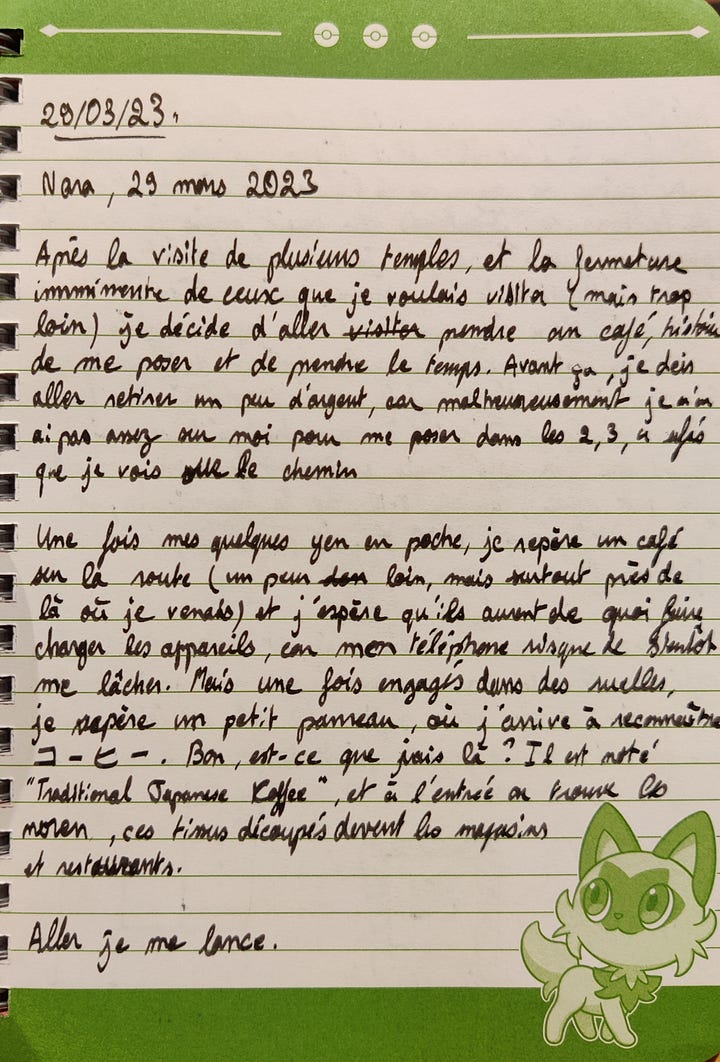 29/03/23.
Nara, 29 mars 2023
Après la visite de plusieurs temples, et la fermeture
imminente de ceux que je voulais visiter (mais trop
loin) je décide d'aller visiter prendre un café, histoire
de me poser et de prendre le temps. Avant ça, je dois
aller retirer un peu d'argent, car malheureusement je n'en
ai pas assez sur moi pour me poser dans les 2, 3, cafés
que je vois sur le chemin
Une fois mes quelques yen en poche, je repère un café
sur la route (un peu loin, mais surtout près de
là où je venais) et j'espère qu'ils auront de quoi faire
charger les appareils, car mon téléphone risque de bientôt
me lâcher. Mais une fois engagés dans des ruelles,
je repère un petit panneau, où j'arrive à reconnaître
コーヒー. Bon, est-ce que j'vais là ? Il est noté
"Traditional Japanese Koffee", et à l'entrée on trouve les
noren, ces tissus découpés devant les magasins
et restaurants.
Aller je me lance.